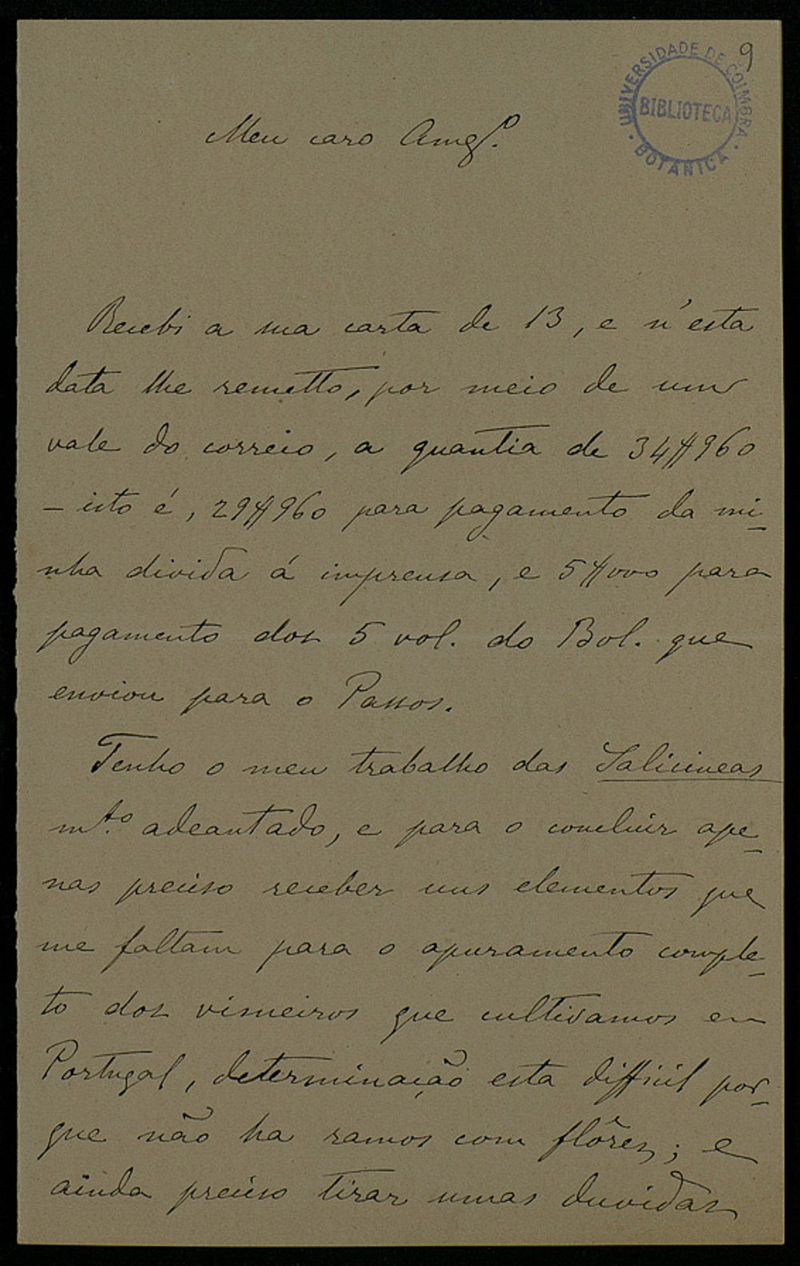 9
UNIVERSIDADE DE COIMBRA
BIBLIOTECA
BOTANICA
Meu caro Amgº.
Recebi a sua carta de 13, e n'esta
data lhe remetto, por meio de um
vale do correio, a quantia de 34$960
– isto é, 29$960 para pagamento da mi-
nha divida á imprensa, e 5$000 para
pagamento dos 5 vol. do Bol. que
enviou para o Passos.
Tenho o meu trabalho das Salicineas
mt.º adeantado, e para o concluir ape-
nas preciso receber uns elementos que
me faltam para o apuramento comple-
to dos vimeiros que cultivamos em
Portugal, determinação esta difficil por-
que não ha ramos com flôres; e
ainda preciso tirar umas duvidas